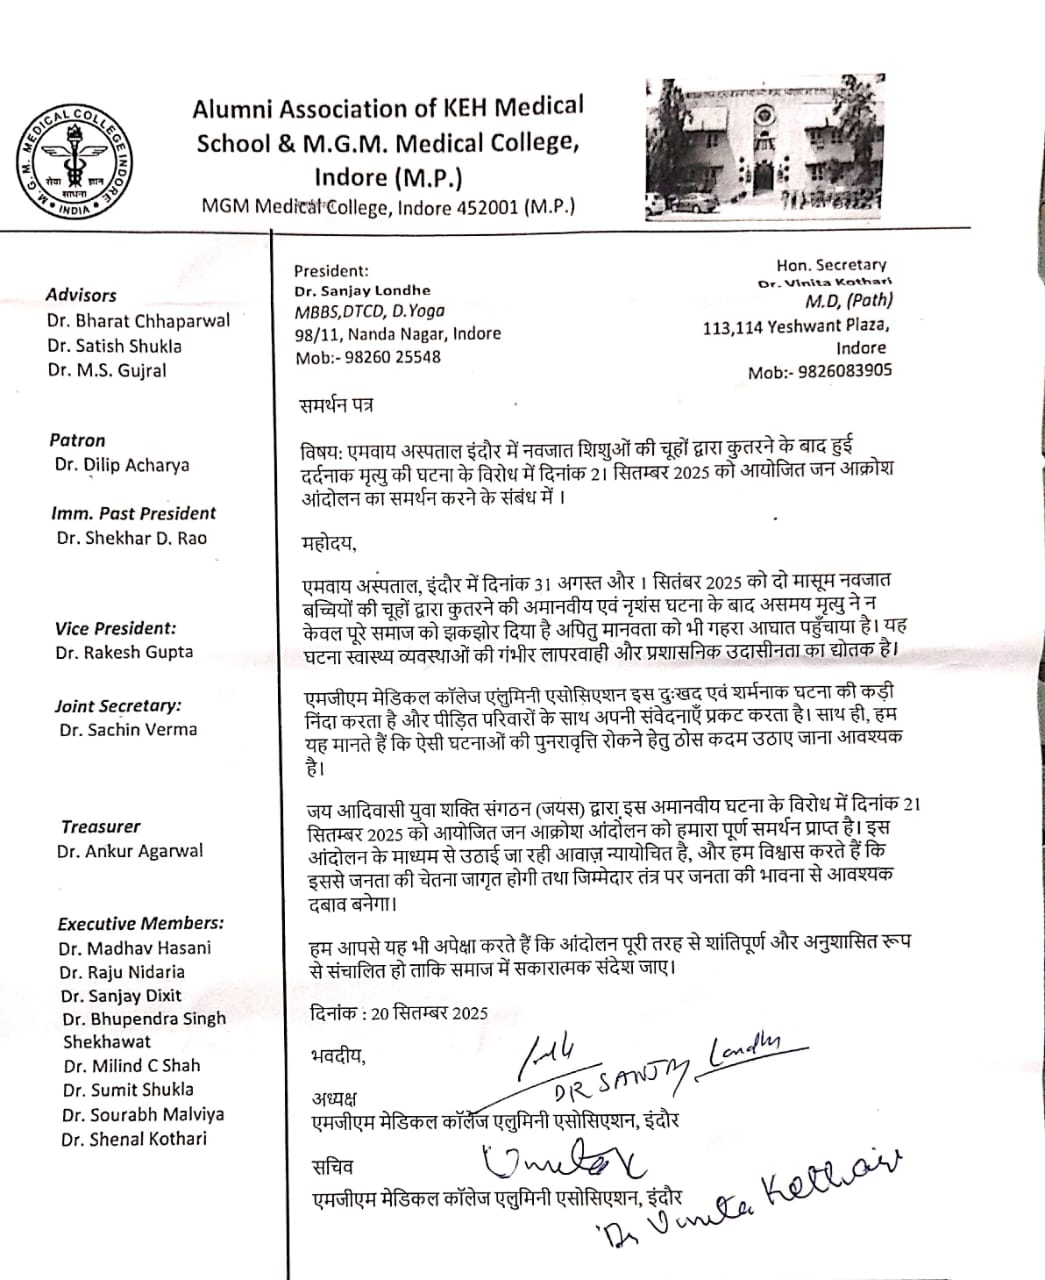 M.G.M. MEDICAL COLLEGE INDORE
सेवा ज्ञान
साधना
INDIA
Alumni Association of KEH Medical
School & M.G.M. Medical College,
Indore (M.P.)
MGM Medical College, Indore 452001 (M.P.)
Advisors
Dr. Bharat Chhaparwal
Dr. Satish Shukla
Dr. M.S. Gujral
Patron
Dr. Dilip Acharya
Imm. Past President
Dr. Shekhar D. Rao
Vice President:
Dr. Rakesh Gupta
Joint Secretary:
Dr. Sachin Verma
Treasurer
Dr. Ankur Agarwal
Executive Members:
Dr. Madhav Hasani
Dr. Raju Nidaria
Dr. Sanjay Dixit
Dr. Bhupendra Singh
Shekhawat
Dr. Milind C Shah
Dr. Sumit Shukla
Dr. Sourabh Malviya
Dr. Shenal Kothari
President:
Dr. Sanjay Londhe
MBBS,DTCD, D.Yoga
98/11, Nanda Nagar, Indore
Mob:- 98260 25548
Hon. Secretary
Dr. Vinita Kothari
M.D, (Path)
113,114 Yeshwant Plaza,
Indore
Mob:- 9826083905
समर्थन पत्र
विषय: एमवाय अस्पताल इंदौर में नवजात शिशुओं की चूहों द्वारा कुतरने के बाद हुई
दर्दनाक मृत्यु की घटना के विरोध में दिनांक 21 सितम्बर 2025 को आयोजित जन आक्रोश
आंदोलन का समर्थन करने के संबंध में ।
महोदय,
एमवाय अस्पताल, इंदौर में दिनांक 31 अगस्त और 1 सितंबर 2025 को दो मासूम नवजात
बच्चियों की चूहों द्वारा कुतरने की अमानवीय एवं नृशंस घटना के बाद असमय मृत्यु ने न
केवल पूरे समाज को झकझोर दिया है अपितु मानवता को भी गहरा आघात पहुँचाया है। यह
घटना स्वास्थ्य व्यवस्थाओं की गंभीर लापरवाही और प्रशासनिक उदासीनता का द्योतक है।
एमजीएम मेडिकल कॉलेज एलुमिनी एसोसिएशन इस दुःखद एवं शर्मनाक घटना की कड़ी
निंदा करता है और पीड़ित परिवारों के साथ अपनी संवेदनाएँ प्रकट करता है। साथ ही, हम
यह मानते हैं कि ऐसी घटनाओं की पुनरावृत्ति रोकने हेतु ठोस कदम उठाए जाना आवश्यक
है।
जय आदिवासी युवा शक्ति संगठन (जयस) द्वारा इस अमानवीय घटना के विरोध में दिनांक 21
सितम्बर 2025 को आयोजित जन आक्रोश आंदोलन को हमारा पूर्ण समर्थन प्राप्त है। इस
आंदोलन के माध्यम से उठाई जा रही आवाज़ न्यायोचित है, और हम विश्वास करते हैं कि
इससे जनता की चेतना जागृत होगी तथा जिम्मेदार तंत्र पर जनता की भावना से आवश्यक
दबाव बनेगा।
हम आपसे यह भी अपेक्षा करते हैं कि आंदोलन पूरी तरह से शांतिपूर्ण और अनुशासित रूप
से संचालित हो ताकि समाज में सकारात्मक संदेश जाए।
दिनांक : 20 सितम्बर 2025
भवदीय,
DR SANJAY Londhe
अध्यक्ष
एमजीएम मेडिकल कॉलेज एलुमिनी एसोसिएशन, इंदौर
सचिव
एमजीएम मेडिकल कॉलेज एलुमिनी एसोसिएशन, इंदौर
Dr Vinita Kothari